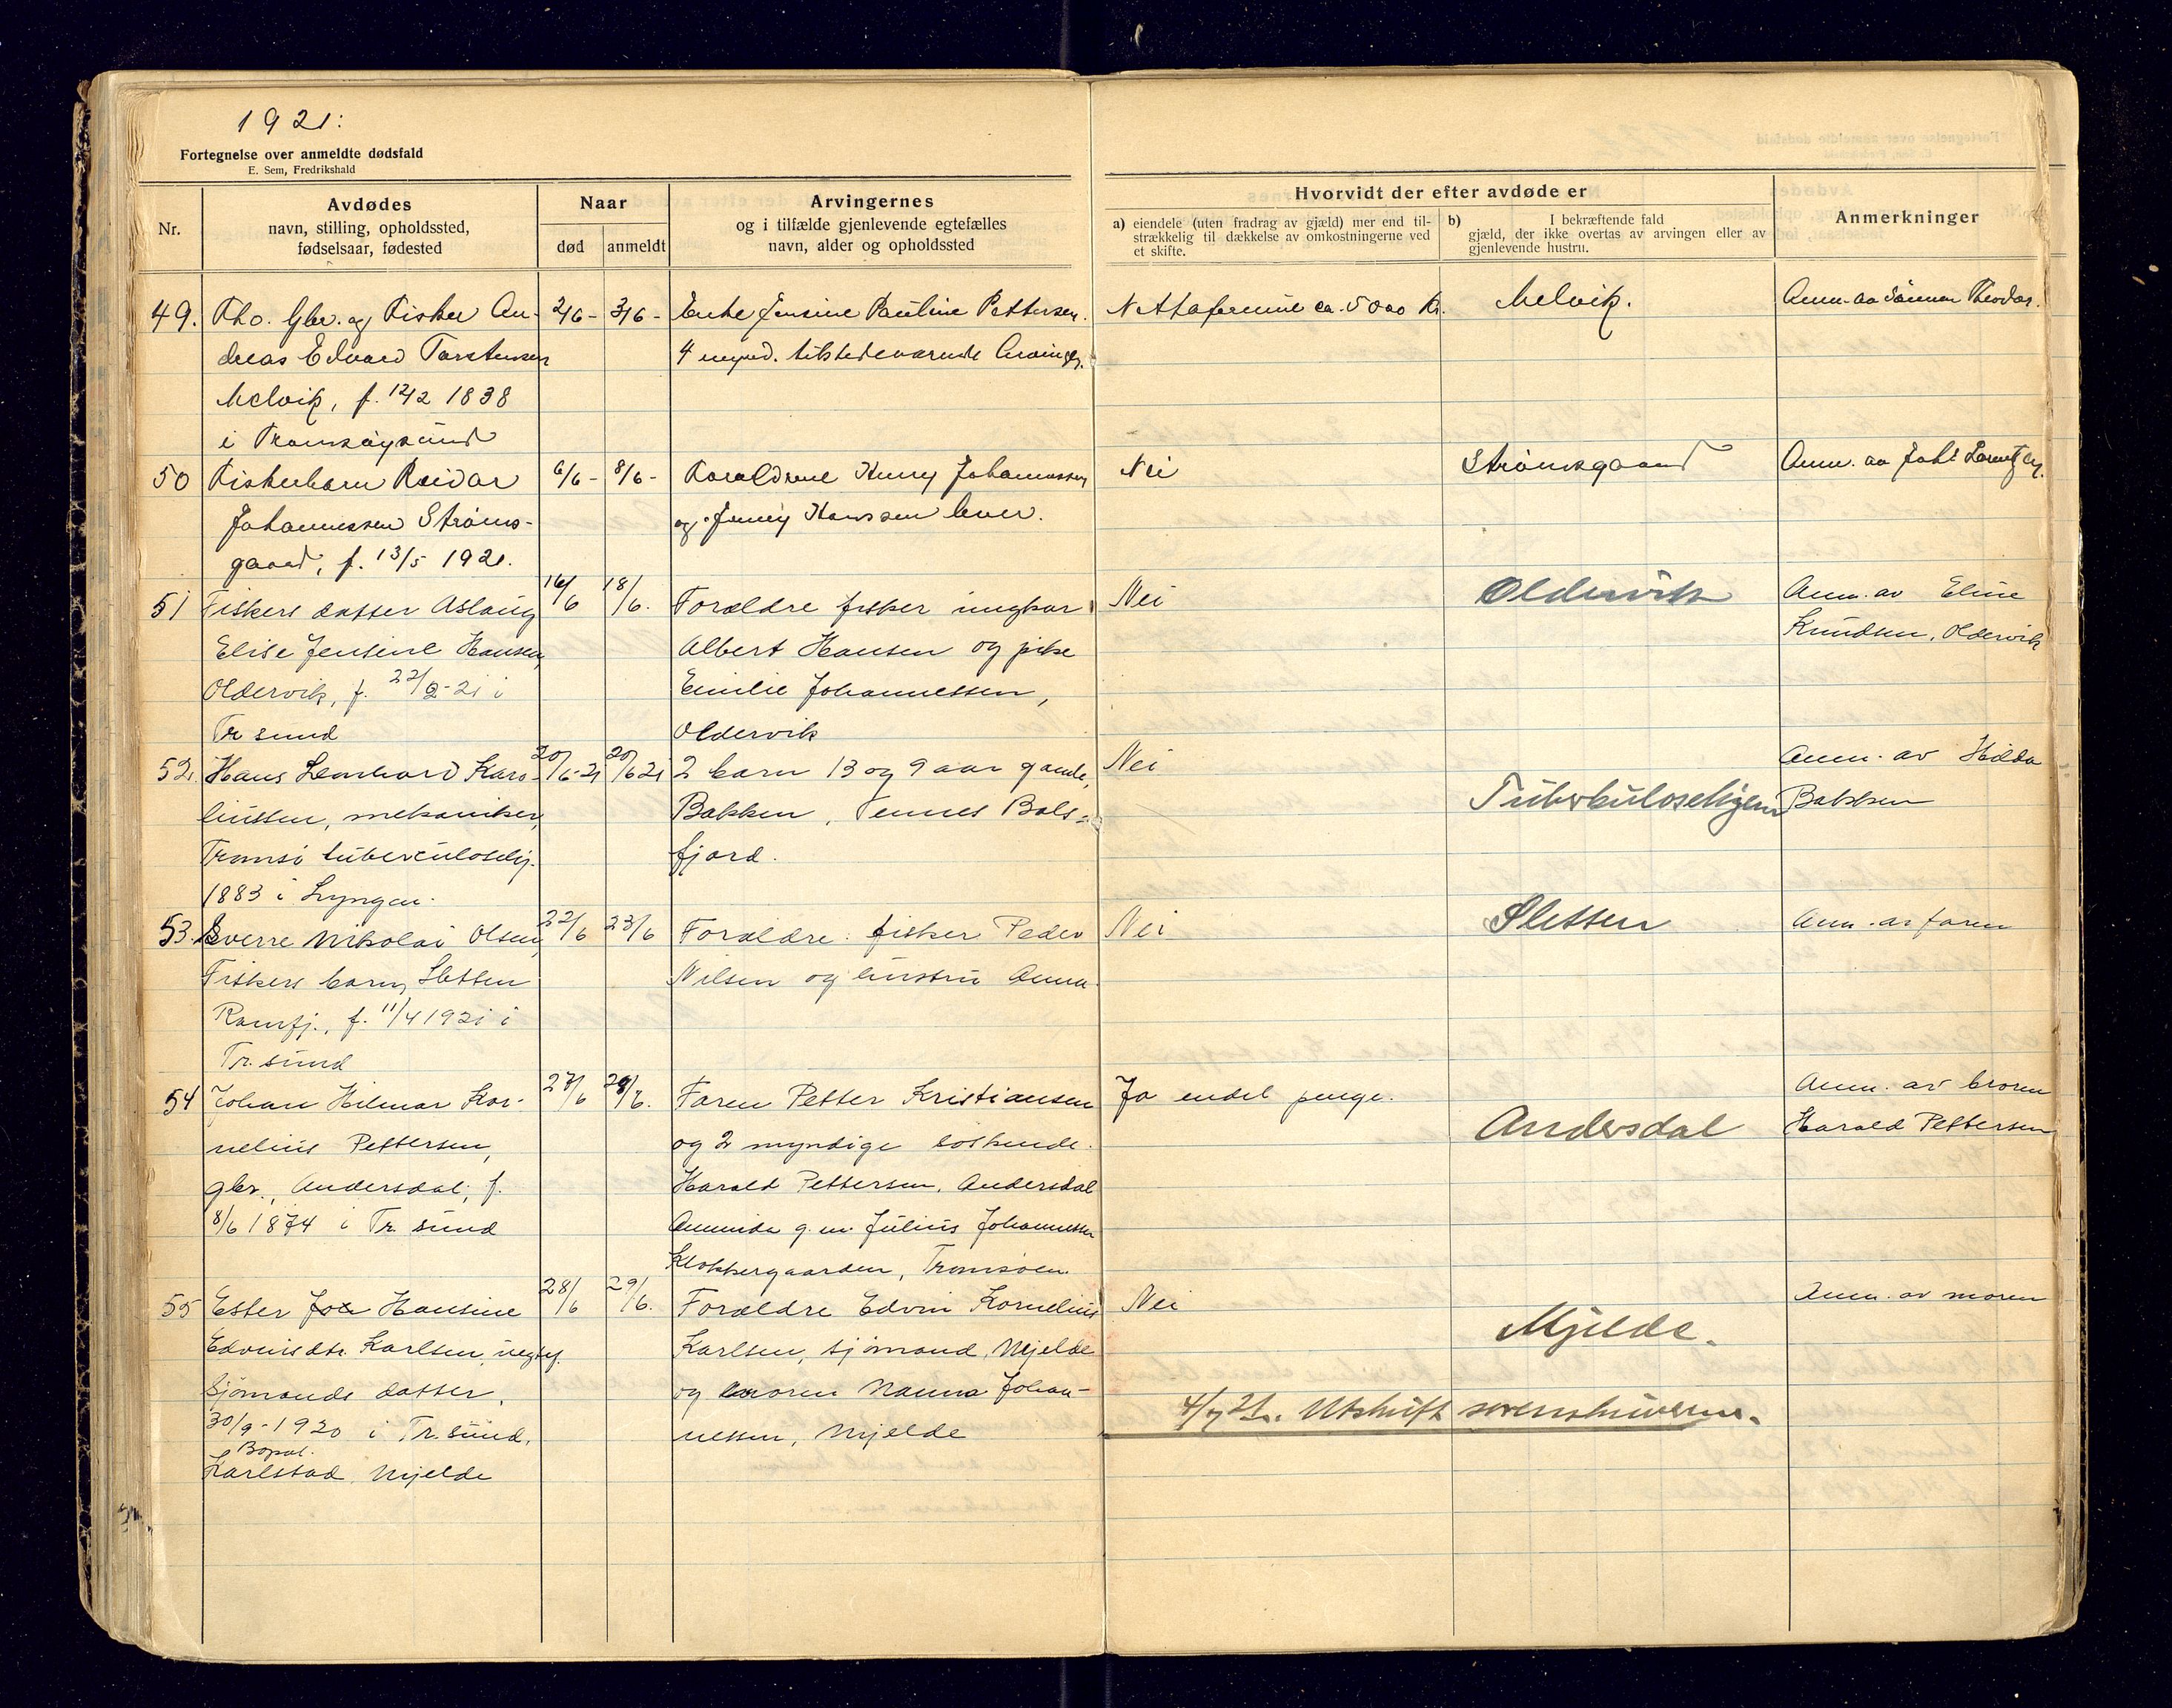 1921:
Fortegnelse over anmeldte dødsfald
E. Sem, Fredrikshald
Nr.
Avdødes
navn, stilling, opholdssted,
fødselsaar, fødested
Naar
død
anmeldt
Arvingernes
og i tilfælde gjenlevende egtefælles
navn, alder og opholdssted
Hvorvidt der efter avdøde er
a) eiendele (uten fradrag av gjæld) mer end til-
strækkelig til dækkelse av omkostningerne ved
et skifte.
b) I bekræftende fald
gjæld, der ikke overtas av arvingen eller av
gjenlevende hustru.
Anmerkninger
49.
Fho. Gbr. og Fisker An-
dreas Edvard Torstensen
Melvik, f. 12/2 1838
i Tromsøysund
2/6 -
3/6 -
Enke Jensine Pauline Pettersen.
4 mynd. tilstedeværende Arvinger.
Nettoformue ca. 5000 Kr.
Melvik.
Anm. av Sønnen Theodor.
50
Fiskerbarn Reidar
Johannessen Strøms-
gaard, f. 13/5 1921.
6/6 -
8/6 -
Forældrene Henry Johannessen
og Jenny Hanssen lever.
Nei
Strømsgaard
Anm. av Johs Lorentzen.
51
Fiskers datter Aslaug
Elise Jensine Hansen,
Oldervik, f. 22/2-21 i
Tr sund
16/6
18/6.
Forældre fisker ungkar
Albert Hansen og pike
Emilie Johannessen,
Oldervik
Nei
Oldervik
Anm. av Eline
Knudsen, Oldervik
52.
Hans Lenhard Karo-
liussen, mekaniker,
Tromsø tuberculosehj.
1883 i Lyngen.
20/6-21
20/6 21
2 barn 13 og 9 aar gamle,
Bakken, Tennes Bals=
fjord.
Nei
Tuberkulosehjem
Anm. av Hilda
Bakken
53.
Sverre Nikolai Olsen,
Fiskers barn, Sletten
Ramfj., f. 11/4 1921 i
Tr. sund
22/6
23/6
Forældre: fisker Peder
Nilsen og hustru Anna.
Nei
Sletten
Anm. av faren
54
Johan Hilmar Kor-
nelius Pettersen,
gbr., Andersdal, f.
8/6 1874 i Tr. sund
27/6
28/6.
Faren Petter Kristiansen
og 2 myndige søskende.
Harald Pettersen, Andersdal
g. m. Julius Johannessen
Klokkergaarden, Tromsøen.
Ja endel penge.
Andersdal
Anm. av broren
Harald Pettersen
55
Ester Hansine
Edvinsdtr. Karlsen,
Sjømands datter,
30/9-1920 i Tr. sund.
Bopæl.
Karlstad, Mjelde
28/6
29/6.
Forældre Edvin Kornelius
Karlsen, sjømand, Mjelde
og moren Nanna Johan-
nessen, Mjelde
Nei
Mjelde.
Anm. av moren
4/7 21. Utskrift sorenskriveren.